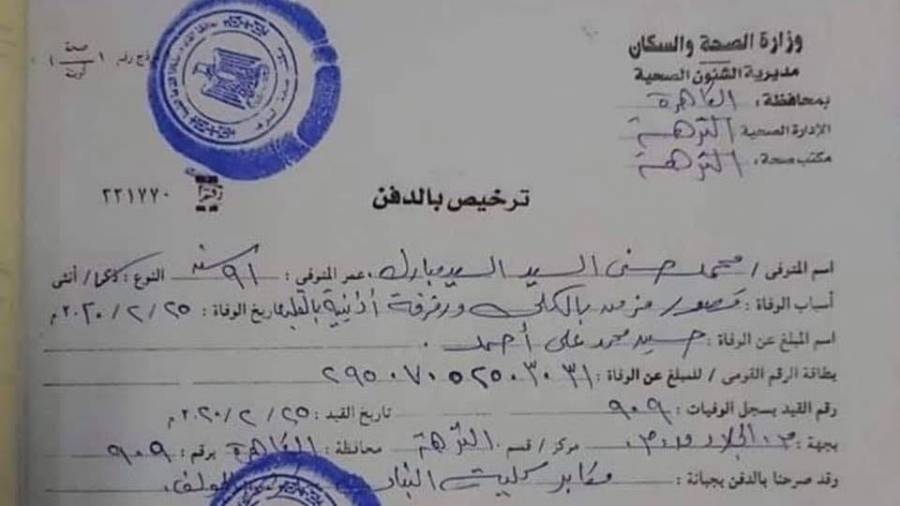 وزارة الصحة والسكان
مديرية الشئون الصحية
بمحافظة: القاهرة
الإدارة الصحية النزهة
مكتب صحة: النزهة
نموذج رقم ( ) صحة
٢٢١٧٧٠
ترخيص بالدفن
اسم المتوفى / محمد حسنى السيد السيد مبارك عمر المتوفى: ٩١ سنه النوع: ذكر / أنثى
أسباب الوفاة: قصور مزمن بالكلى ورفرفة أذنية بالقلب تاريخ الوفاة: ٢٥ / ٢ / ٢٠٢٠ م
اسم المبلغ عن الوفاة: حسيد محمد على أحمد
بطاقة الرقم القومى / للمبلغ عن الوفاة:
رقم القيد بسجل الوفيات: ٩٠٩ تاريخ القيد: ٢٥ / ٢ / ٢٠٢٠ م
بجهة: م. الجلاء مركز / قسم النزهة محافظة: القاهرة برقم: ٩٠٩
وقد صرحنا بالدفن بجبانة: مقابر كلية البنات